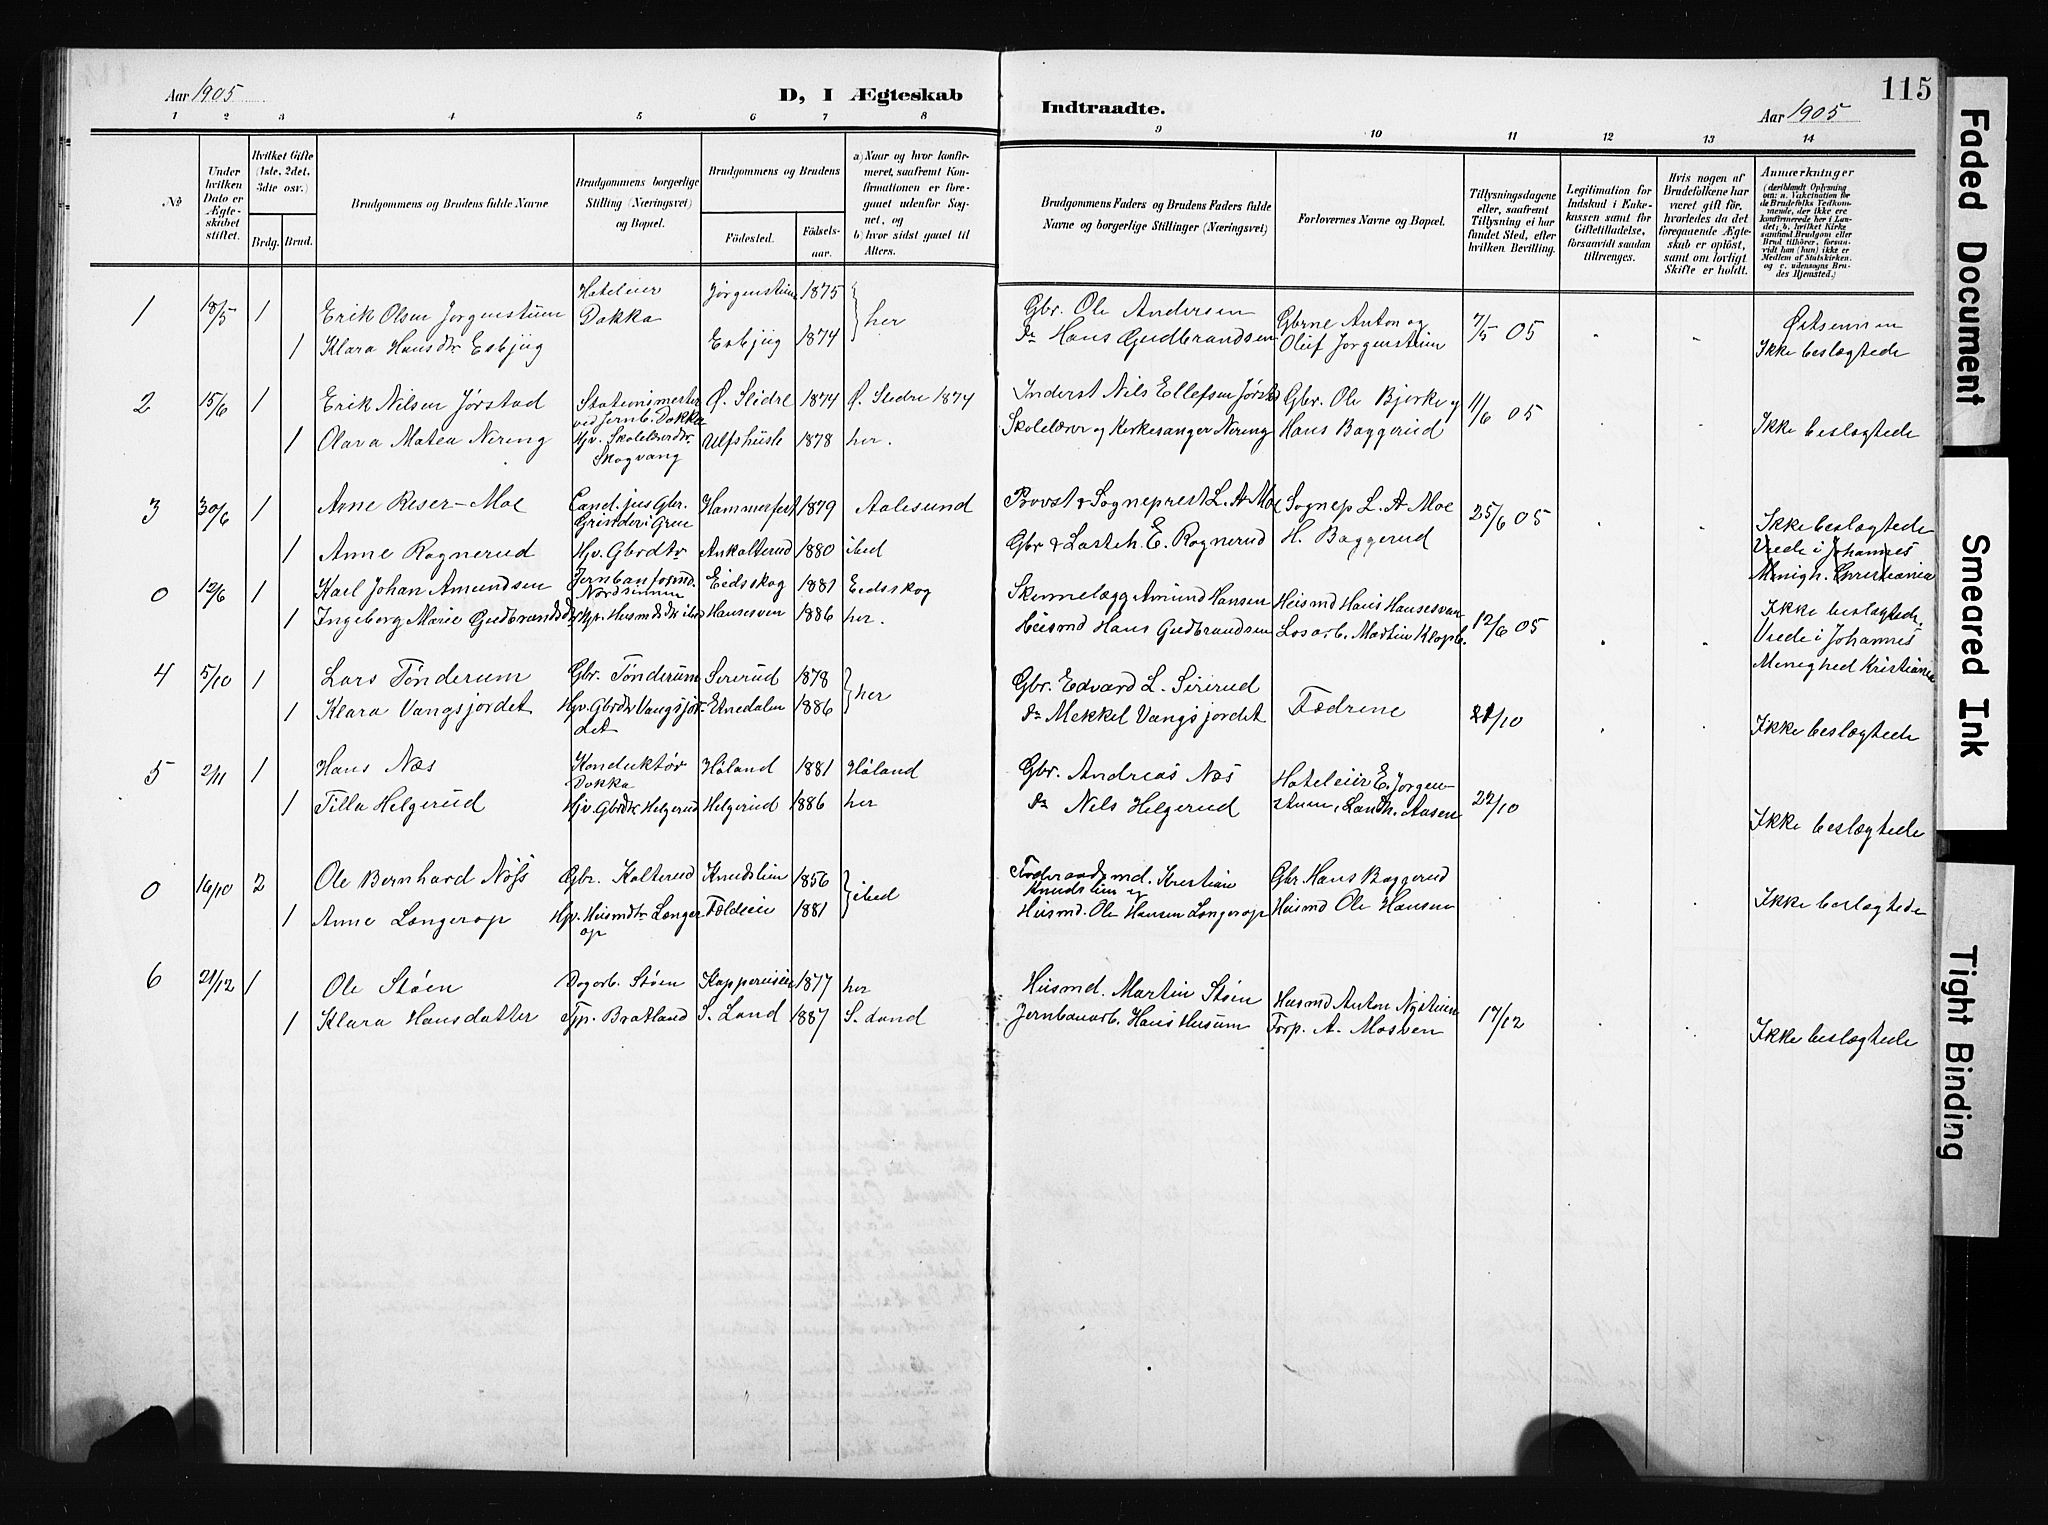 Aar 1905
D, I Ægteskab
Indtraadte.
Aar 1905
115
1 2 3 4 5 6 7 8 9 10 11 12 13 14
No
Under hvilken Dato er Ægteskabet stiftet.
Hvilket Gifte (1ste, 2det, 3die osv.)
Brdg. Brud.
Brudgommens og Brudens fulde Navne
Brudgommens borgerlige Stilling (Næringsvei) og Bopæl.
Brudgommens og Brudens
Fødested. Fødselsaar.
a) Naar og hvor konfirmeret, saafremt Konfirmationen er foregaaet udenfor Sognet, og
b) hvor sidst gaaet til Alters.
Brudgommens Faders og Brudens Faders fulde Navne og borgerlige Stillinger (Næringsvei)
Forlovernes Navne og Bopæl.
Tillysningsdagene eller, saafremt Tillysning ei har fundet Sted, efter hvilken Bevilling.
Legitimation for Indskud i Enkekassen samt for Giftetilladelse, forsaavidt saadan tiltrænges.
Hvis nogen af Brudefolkene har været gift før, hvorledes da det foregaaende Ægteskab er opløst, samt om lovligt Skifte er holdt.
Anmærkninger
(deriblandt Oplysning om: a. Vaksination for de Brudefolks Vedkommende, der ikke ere konfirmerede her i Landet; b. hvilket Kirkesamfund Brudgom eller Brud tilhører, forsaavidt han (hun) ikke er Medlem af Statskirken. og c. udensogns Brudes Hjemsted.)
1 18/5 1 Erik Olsen Jørgenstuen Hoteleier Dokka Jørgenstuen 1875 her Gbr. Ole Andersen Gbrne Anton og 7/5 05
1 Klara Hansdtr Esbjug Esbjug 1874 Do Hans Gudbrandsen Oluf Jørgenstuen Ikke beslægtede
2 15/6 1 Erik Nilsen Jørstad Stationsmester ved Jernb. Dokka Ø. Slidre 1874 Ø. Slidre 1874 Inderst Nils Ellefsen Gbr. Ole Bjerke og 11/6 05
1 Olava Matea Nering Hjv. Skolelærerdtr. Skogvang Ulfshusle 1878 her. Skolelærer og Kirkesanger Nering Hans Baggerud Ikke beslægtede
3 30/6 1 Arne Reser-Moe Cand. jus Gbr. Grinder i Grue Hammerfest 1879 Aalesund Provst & Sogneprest L. A. Moe Sognep. L. A. Moe 25/6 05
1 Anne Rognerud Hjv. Gbrdtr 1880 ibid Gbr & Lasteh. E. Rognerud H. Baggerud Ikke beslægtede
Viede i Johannes
Menigh. Christiania
0 12/6 1 Karl Johan Amundsen Nordsinnen Eidsskog 1881 Eidsskog Amund Hansen Husmd Hans Hansesven 12/6 05
1 Ingeborg Marie Husmdtr ibid Hansesven 1886 her. Husmd Hans Gudbrandsen Losarb. Martin Ikke beslægtede.
Viede i Johannes
Menighed Kristiania
4 5/10 1 Lars Tønderum Gbr. Tønderum Sørerud 1878 her Gbr. Edvard L. Sørerud Fædrene 21/10
1 Klara Vangsjordet Hjv. Gbrdtr Vangsjordet Etnedalen 1886 Do Mekkel Vangsjordet Ikke beslægtede
5 2/11 1 Hans Næs Konduktør Dokka Høland 1881 Høland Gbr. Andreas Næs Hoteleier E. Jørgen-
1 Tilla Helgerud Hjv. Gbrdtr Helgerud Helgerud 1886 her Do Nils Helgerud stuen, Landh. Aasen 22/10 Ikke beslægtede
0 16/10 2 Ole Bernhard Gbr. Kolterud Knudslien 1856 ibid Føderaadsmd. Kristian Knudslien Gbr Hans Baggerud
1 Anne Langerop Hjv. Husmdtr Langerop 1881 Husmd. Ole Hansen Langerop Husmd Ole Hansen Ikke beslægtede
6 21/12 1 Ole Støen Dagarb. Støen 1877 her Husmd. Martin Støen Husmd Anton Nystuen
1 Klara Hansdatter Tjp. Bratland S. Land 1887 S. Land Jernbanarb. Hans Husum Torp. A. Mosven 17/12 Ikke beslægtede
Faded Document
Smeared Ink
Tight Binding